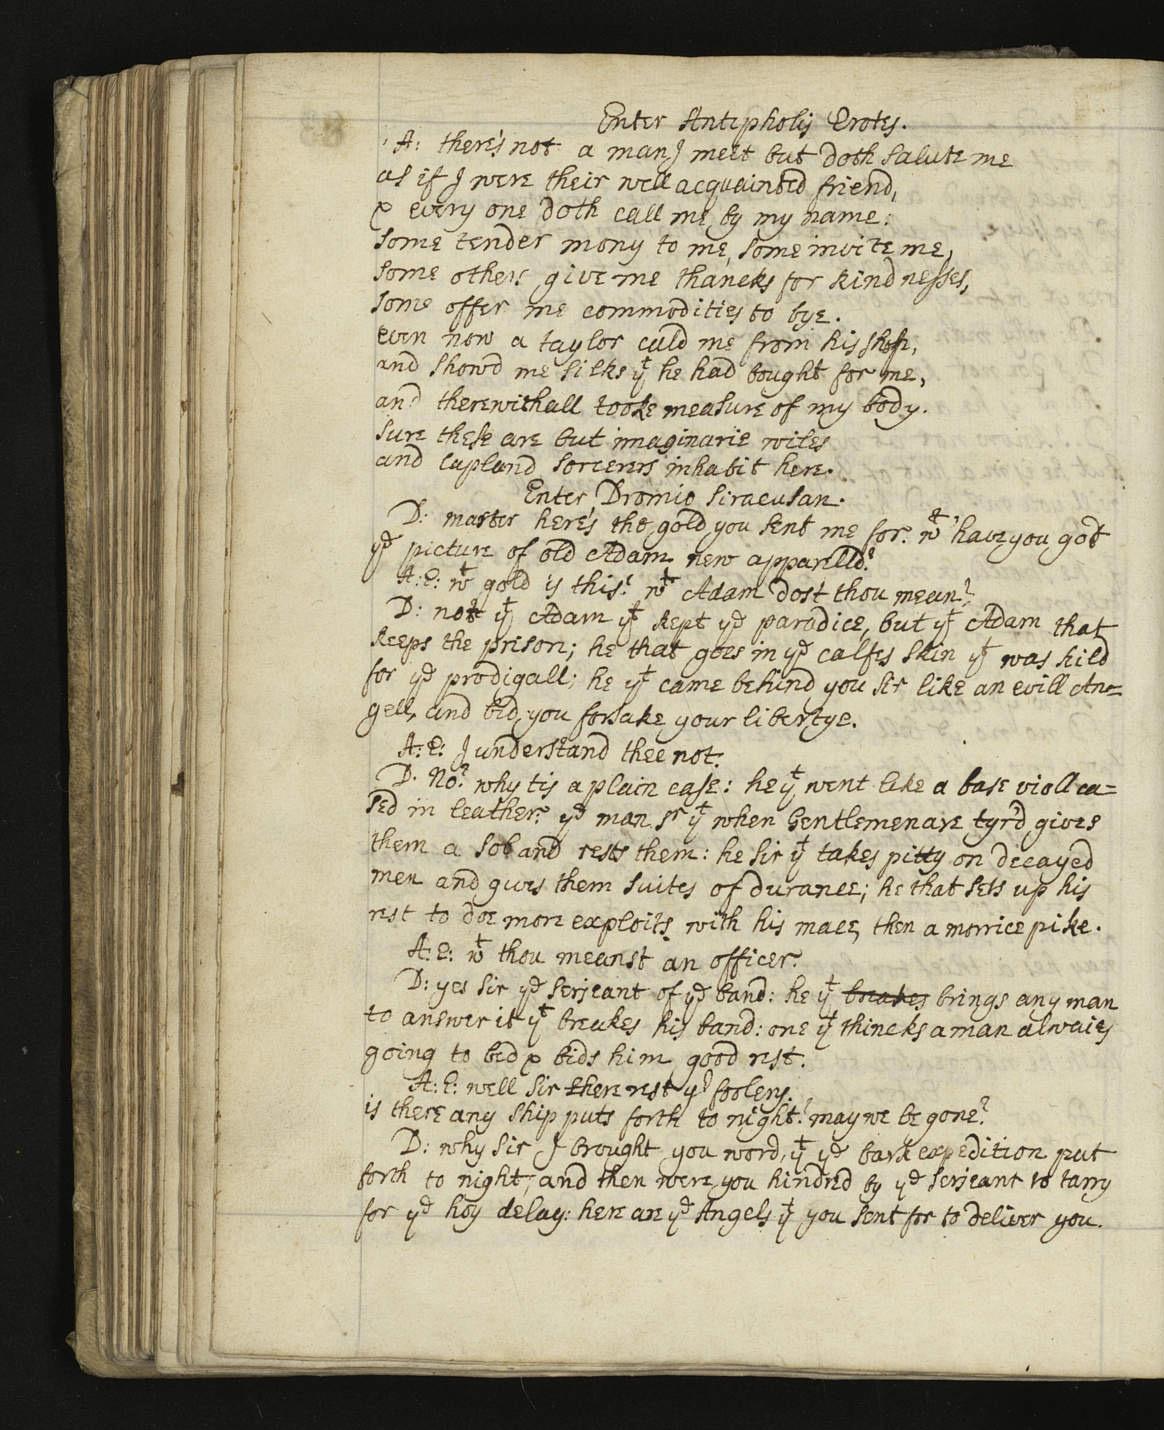 Enter Antipholis Erotes.
A: there's not a man J meet but doth salute me
as if J were their well acquainted friend,
& every one doth call me by my name:
Some tender mony to me, some invite me,
Some others give me thancks for kindnesses,
Some offer me commodities to bye.
even now a taylor cald me from his shop,
and showd me silks yt he had bought for me,
and therewithall tooke measure of my body.
Sure these are but imaginarie wiles
and Lapland Sorcerers inhabit here.
Enter Dromio Siracusan.
D: master here's the gold you sent me for. wt have you got
ye picture of old Adam new apparelld?
A: E: wt gold is this? wt Adam dost thou mean?
D: not yt Adam yt kept ye paradice, but yt Adam that
keeps the prison; he that goes in ye calfes skin yt was kild
for ye prodigall; he yt came behind you sir like an evill An=
gell, and bid you forsake your libertye.
A: E: J understand thee not.
D. No? why tis a plain case: he yt went like a base violl ca=
sed in leather. ye man Sr yt when Gentlemen are tyr'd gives
them a sob and rests them: he sir yt takes pitty on decayed
men and gives them suites of durance; he that sets up his
rest to doe more exploits with his mace, then a morrice pike.
A: E: wt thou meanst an officer?
D: yes sir ye serjeant of ye band: he yt breakes brings any man
to answer it yt breakes his band: one yt thincks a man alwaies
going to bed & bids him good rest.
A: E: well sir there rest yr foolery.
is there any ship puts forth to night? may we be gone?
D: why sir J brought you word, yt ye bark expedition put
forth to night, and then were you hindred by ye serjeant to tarry
for ye hoy delay: here are ye Angels yt you sent for to deliver you.